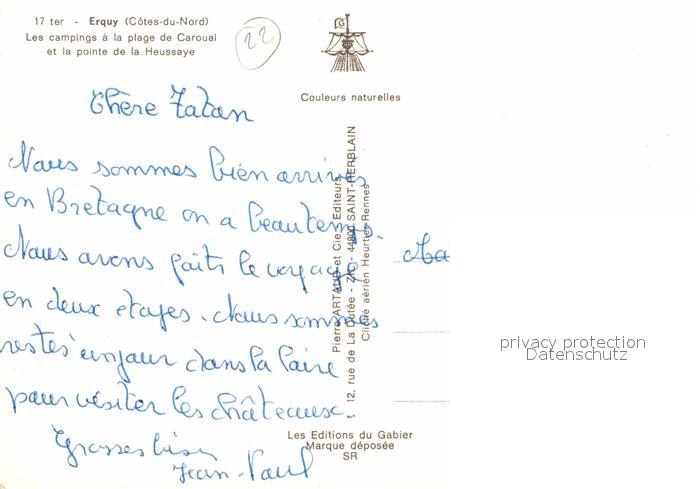 17 ter - Erquy (Côtes-du-Nord)
Les campings à la plage de Caroual
et la pointe de la Heussaye
22
Couleurs naturelles
Chère Tatan
Nous sommes bien arrivés
en Bretagne on a beautemps.
Nous avons faits le voyage
en deux etapes. Nous sommes
restés un jour dans la Loire
pour visiter les châteaux.
Grosses bises
Jean-Paul
La
Pierre ARTAUD et Cie, Editeurs
12, rue de La Loutée - ZIC - 44800 SAINT-HERBLAIN
Cliché aérien Heurtier-Rennes
privacy protection
Datenschutz
Les Editions du Gabier
Marque déposée
SR